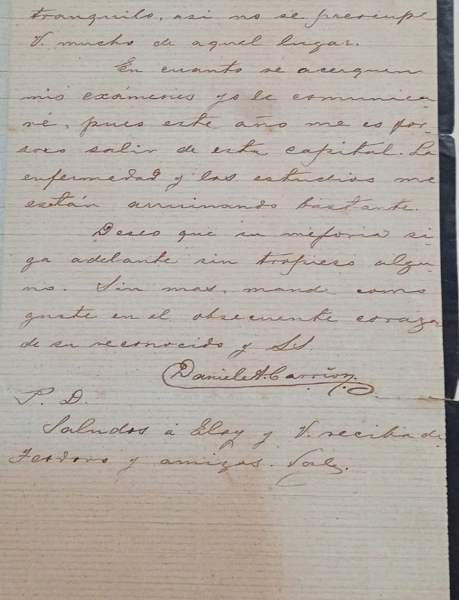 tranquilo, asi no se preocup
V. mucho de aquel lugar.
En cuanto se acerquen
mis exámenes yo le comunica-
ré, pues este año me es for-
soso salir de esta capital. La
enfermedad y los estudios me
están arruinando bastante.
Deseo que su mejoria si-
ga adelante sin tropieso algu-
no. Sin mas, mande como
guste en el obsecuente corazon
de su reconocido y SS.
Daniel A. Carrión.
P. D.
Saludos á Eloy y V. reciba de
Teodoro y amigos. Vale.